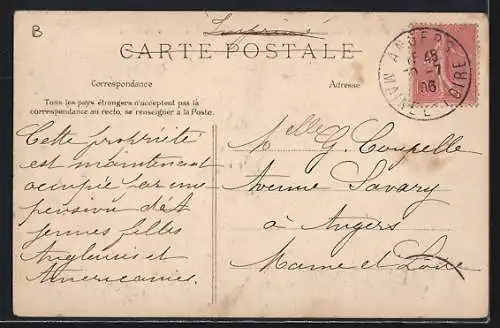 B
Imprimé
CARTE POSTALE
Correspondance
Adresse
Tous les pays étrangers n'acceptent pas la
correspondance au recto, se renseigner à la Poste.
ANGERS
48
-7
06
MAINE ET LOIRE
Cette propriété
est maintenant
occupée par une
pension de
jeunes filles
Anglaises et
Américaines.
Melle G. Coupelle
Avenue Savary
à Angers
Maine et Loire